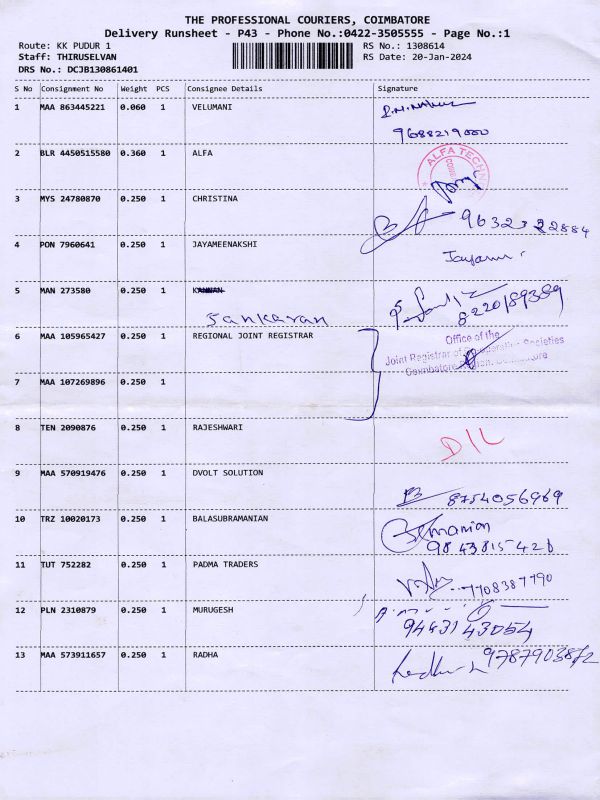 THE PROFESSIONAL COURIERS, COIMBATORE
Delivery Runsheet - P43 - Phone No.:0422-3505555 - Page No.:1
Route: KK PUDUR 1 RS No.: 1308614
Staff: THIRUSELVAN RS Date: 20-Jan-2024
DRS No.: DCJB130861401
S No Consignment No Weight PCS Consignee Details Signature
1 MAA 863445221 0.060 1 VELUMANI
9688219000
2 BLR 4450515580 0.360 1 ALFA ALFA TECHN
3 MYS 24780870 0.250 1 CHRISTINA
4 PON 7960641 0.250 1 JAYAMEENAKSHI
5 MAN 273580 0.250 1 KANNAN
Sankaran 8220189389
6 MAA 105965427 0.250 1 REGIONAL JOINT REGISTRAR Office of the
Joint Registrar of Co-operative Societies
Coimbatore Region, Coimbatore
7 MAA 107269896 0.250 1
8 TEN 2090876 0.250 1 RAJESHWARI D/L
9 MAA 570919476 0.250 1 DVOLT SOLUTION 8754056969
10 TRZ 10020173 0.250 1 BALASUBRAMANIAN
11 TUT 752282 0.250 1 PADMA TRADERS 7708387790
12 PLN 2310879 0.250 1 MURUGESH
9443143054
13 MAA 573911657 0.250 1 RADHA